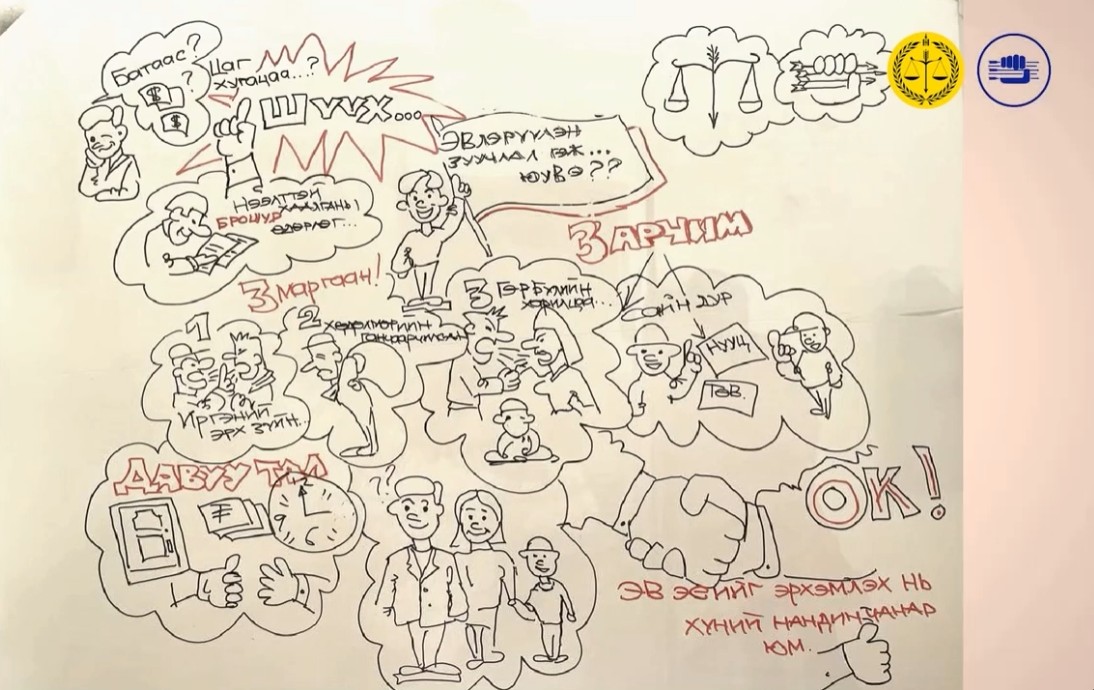 Батаас?
?
$
$
Цаг
хугацаа...?
ШҮҮХ...
ЭВЛЭРҮҮЛЭН
ЗУУЧЛАЛ ГЭЖ...
ЮУВЭ??
НЭЭЛТТЭЙ
БРОШУР ХААЛГАНЫ
ӨДӨРЛӨГ...
3 АРЧИМ
3 маргаан!
1
ИРГЭНИЙ
ЭРХ ЗҮЙН...
2 ХӨДӨЛМӨРИЙН
3 ГЭР БҮЛИЙН
ХАРИЛЦАА...
САЙН ДУР
НУУЦ
ТӨВ.
ДАВУУ ТАЛ
₮
??
ОК!
ЭВ ЭЕИЙГ ЭРХЭМЛЭХ НЬ
ХҮНИЙ НАНДИН ЧАНАР
ЮМ.